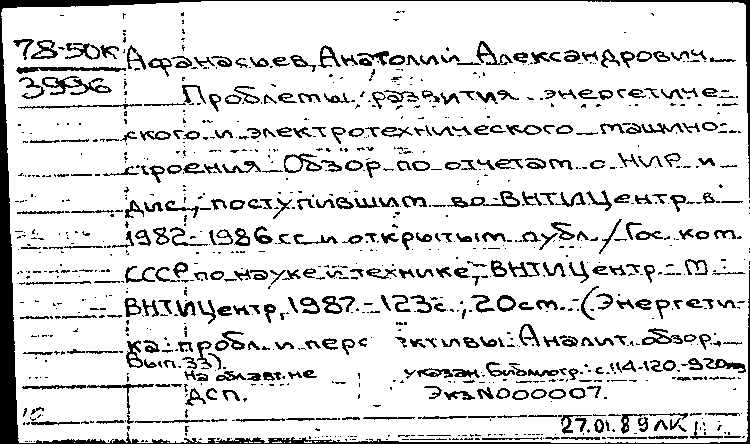 78-50к Афанасьев, Анатолий Александрович.
3996 Проблемы развития энергетиче-
ского и электротехнического машино-
строения: Обзор по отчетам о НИР и
дис., поступившим во ВНТИЦентр в
1982-1986 гг. и открытым публ. / Гос. ком.
СССР по науке и технике, ВНТИЦентр. - М.:
ВНТИЦентр, 1987. - 123 с.; 20 см. - (Энергети-
ка: пробл. и перспективы: Аналит. обзор;
Вып. 33).
На обл. авт. не указан. Библиогр.: с. 114-120. - 920
ДСП. Экз N000007.
10
27.01.89 ЛК